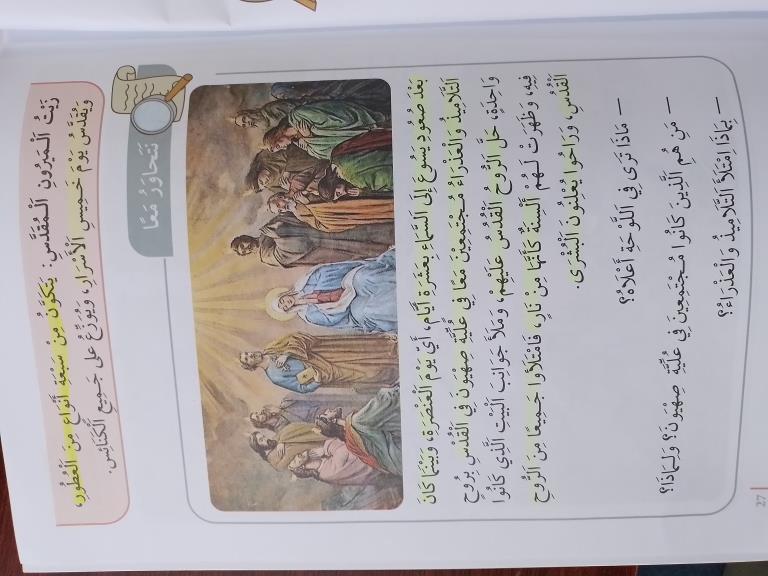 زَيْتُ الْمِيرُونِ الْمُقَدَّسِ: يَتَكَوَّنُ مِنْ سَبْعَةِ أَنْوَاعٍ مِنَ الْعُطُورِ،
وَيُقَدَّسُ يَوْمَ خَمِيسِ الْأَسْرَارِ، وَيُوَزَّعُ عَلَى جَمِيعِ الْكَنَائِسِ.
نَتَحَاوَرُ مَعًا
بَعْدَ صُعُودِ يَسُوعَ إِلَى السَّمَاءِ بِعَشَرَةِ أَيَّامٍ، أَيْ يَوْمَ الْعَنْصَرَةِ، وَبَيْنَمَا كَانَ
التَّلَامِيذُ وَالْعَذْرَاءُ مُجْتَمِعِينَ مَعًا فِي عُلِّيَّةِ صِهْيَوْنَ فِي الْقُدْسِ بِرُوحٍ
وَاحِدَةٍ، حَلَّ الرُّوحُ الْقُدُسُ عَلَيْهِمْ، وَمَلَأَ جَوَانِبَ الْبَيْتِ الَّذِي كَانُوا
فِيهِ، وَظَهَرَتْ لَهُمْ أَلْسِنَةٌ كَأَنَّهَا مِنْ نَارٍ، فَامْتَلَأُوا جَمِيعًا مِنَ الرُّوحِ
الْقُدُسِ، وَرَاحُوا يُعْلِنُونَ الْبُشْرَى.
– مَاذَا تَرَى فِي اللَّوْحَةِ أَعْلَاهُ؟
– مَنِ هُمِ الَّذِينَ كَانُوا مُجْتَمِعِينَ فِي عُلِّيَّةِ صِهْيَوْنَ؟ وَلِمَاذَا؟
– بِمَاذَا اِمْتَلَأَ التَّلَامِيذُ وَالْعَذْرَاءُ؟
27